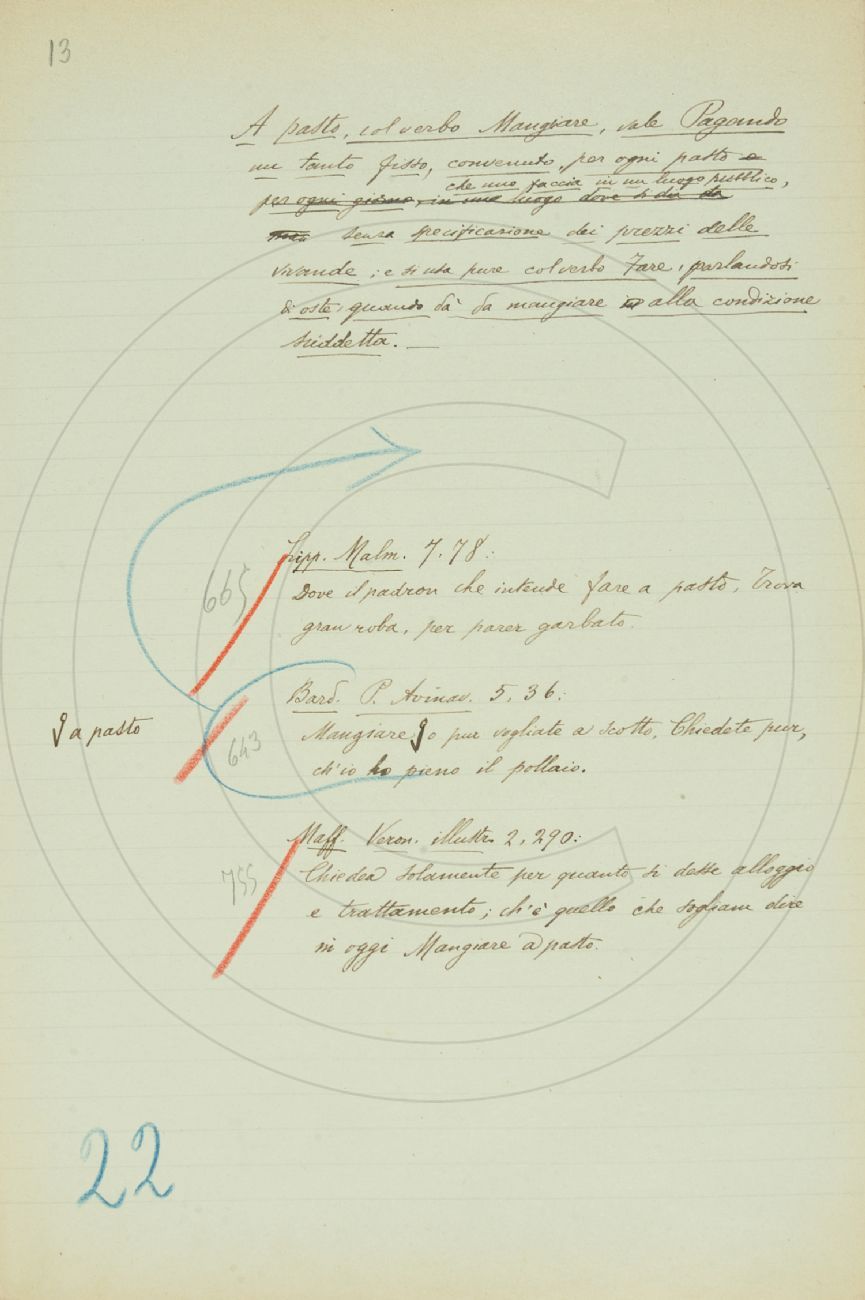 13
A pasto, col verbo Mangiare, vale Pagando
un tanto fisso, convenuto, per ogni pasto o
che uno faccia in un luogo pubblico,
per ogni giorno, in uno luogo dove si dia da
senza specificazione dei prezzi delle
vivande; e si usa pure col verbo Fare, parlandosi
di oste, quando dà da mangiare alla condizione
suddetta. —
Lipp. Malm. 7. 78:
665
Dove il padron che intende fare a pasto, Trova
gran roba, per parer garbato.
Bard. P. Avinav. 5, 36:
a pasto
Mangiare o pur vogliate a scotto, Chiedete pur,
643
ch'io ho pieno il pollaio.
Maff. Veron. illustr. 2, 290:
755
Chiedea solamente per quanto si desse alloggio
e trattamento; ch'è quello che sogliam dire
in oggi Mangiare a pasto.
22